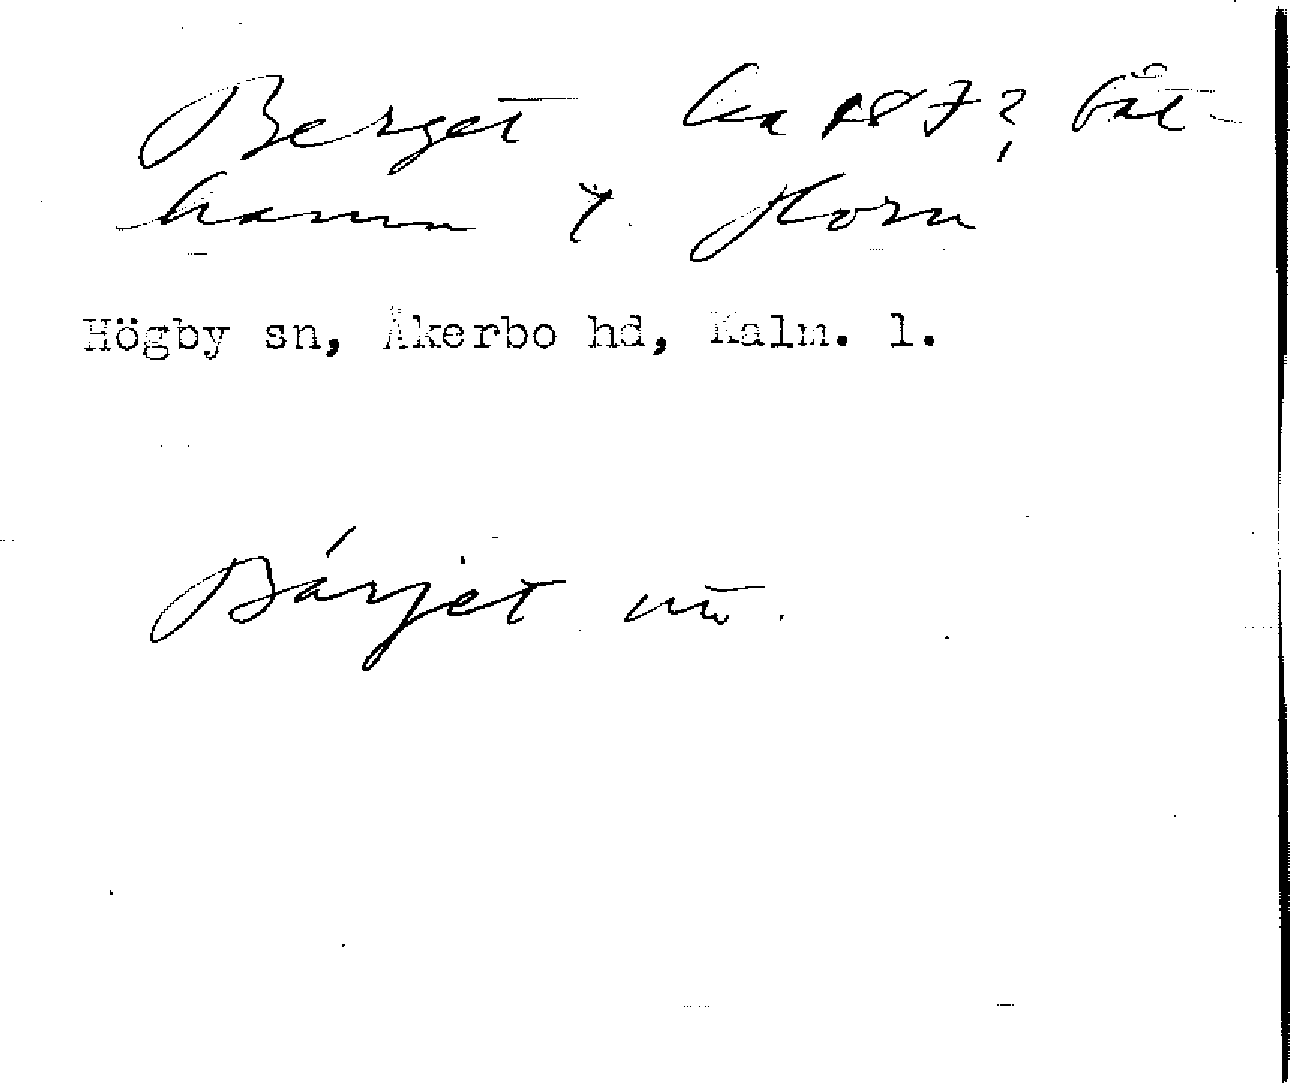 Berget ha 187? båt-
hamn t. Horn
Högby sn, Åkerbo hd, Kalm. l.
Bárjet nu.